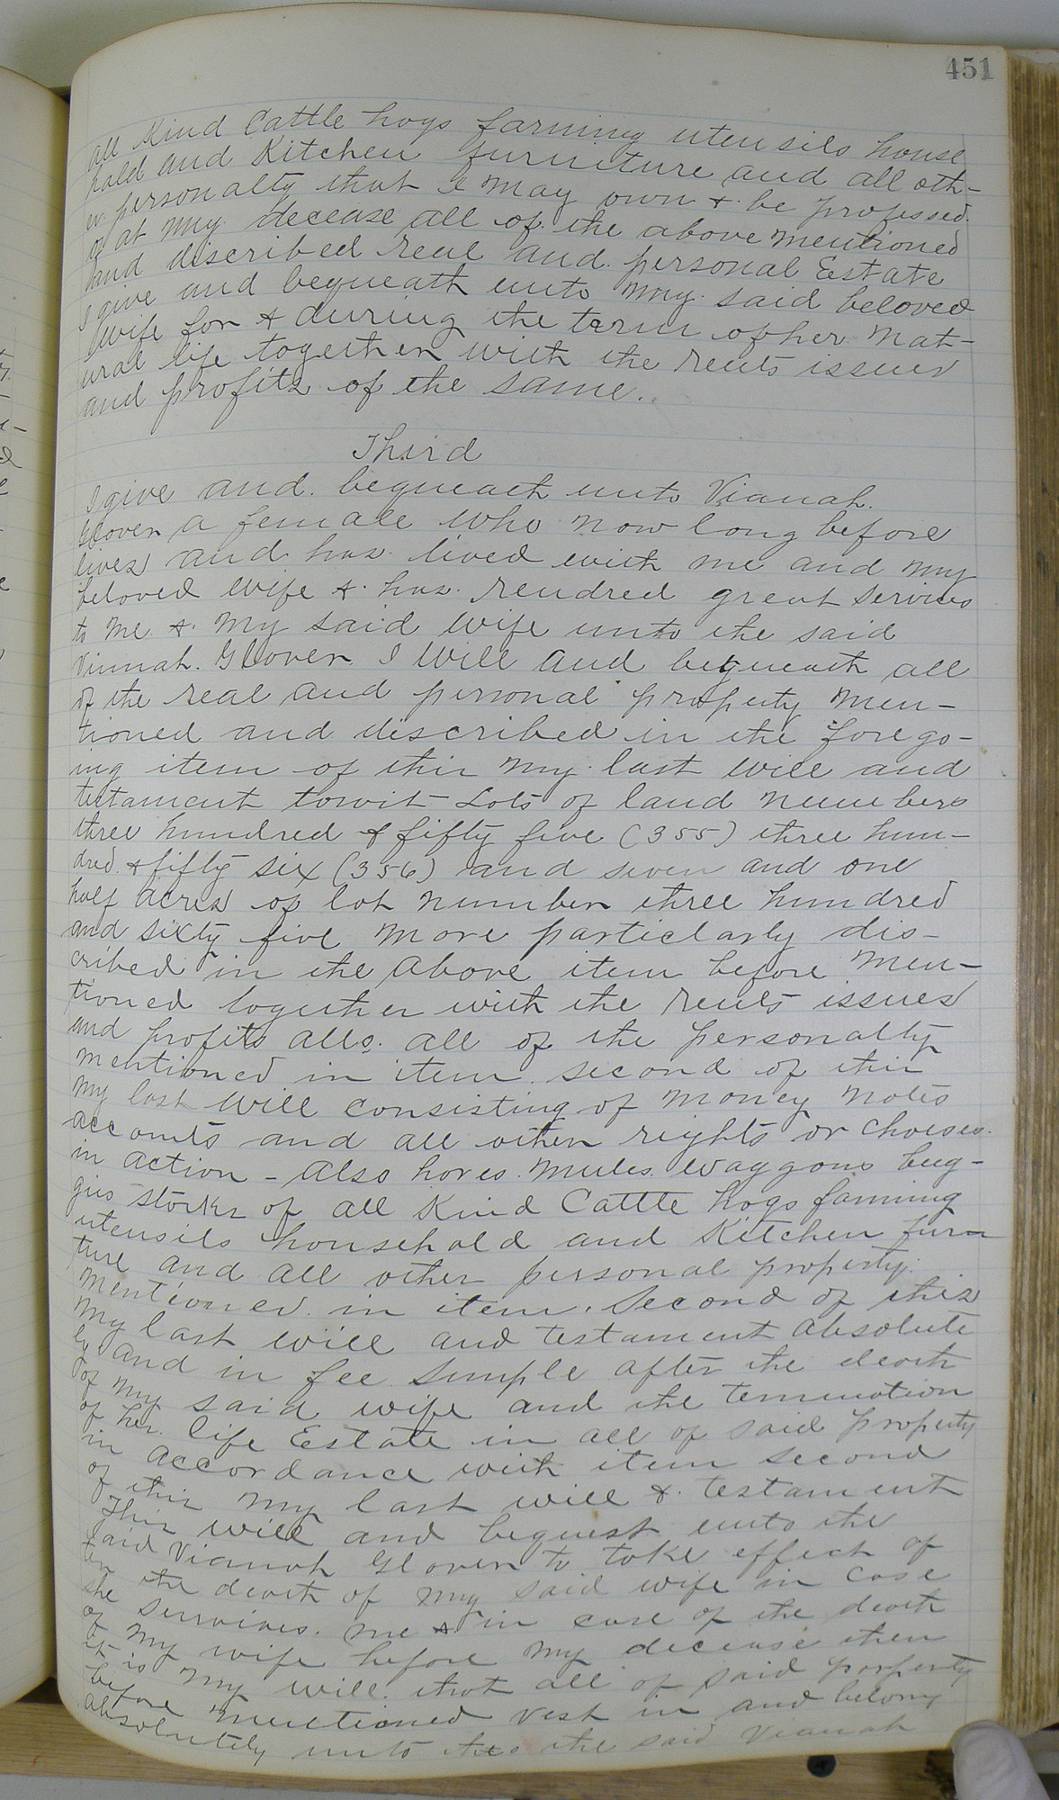 451
all Kind Cattle hogs farming utensils house
hold and Kitchen furniture and all oth-
er personalty that I may own & be professed
of at my decease all of the above mentioned
and discribed real and personal Estate
I give and bequeath unto my said beloved
wife for & during the term of her nat-
ural life together with the rents issues
and profits of the same.
Third
I give and bequeath unto Vianah
Glover a female who now long before
lives and has lived with me and my
beloved wife & has rendred great services
to me & my said wife unto the said
Viannah Glover I will and bequeath all
of the real and personal property men-
tioned and discribed in the forego-
ing item of this my last will and
testament towit Lots of land numbers
three hundred & fifty five (355) three hun-
dred & fifty six (356) and seven and one
half acres of lot number three hundred
and sixty five more particlarly dis-
cribed in the above item before men-
tioned together with the rents issues
and profits allso all of the personalty
mentioned in item second of this
my last will consisting of money notes
accounts and all other rights or choises
in action - also hores mules waggons bug-
gies stocks of all Kind Cattle hogs farming
utensils household and Kitchen furn
ture and all other personal property
mentioned in item Second of this
my last will and testament absolute
ly and in fee simple after the death
of my said wife and the termination
of her life Estate in all of said property
in accordance with item second
of this my last will & testament
This will and bequest unto the
said Vianah Glover to take effect af
ter the death of my said wife in case
she survives me & in case of the death
of my wife before my decease then
it is my will that all of said property
before mentioned vest in and belong
absolutely unto the the said Vianah